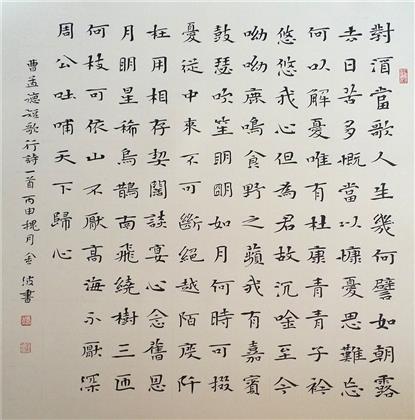 對酒當歌人生幾何譬如朝露
去日苦多慨當以慷憂思難忘
何以解憂唯有杜康青青子衿
悠悠我心但為君故沉唫至今
呦呦鹿鳴食野之蘋我有嘉賓
鼓瑟吹笙明明如月何時可掇
憂從中來不可斷絕越陌度阡
枉用相存契闊談宴心念舊恩
月明星稀烏鵲南飛繞樹三匝
何枝可依山不厭高海不厭深
周公吐哺天下歸心
曹孟德短歌行詩一首丙申槐月金波書